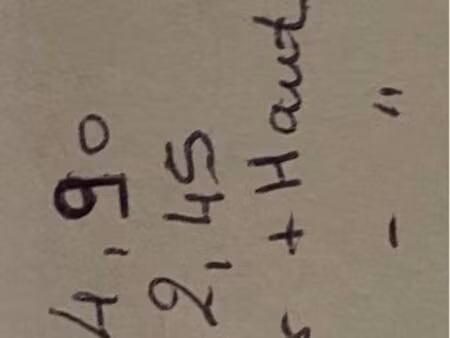 4,90
2,45
+ Haut
- "